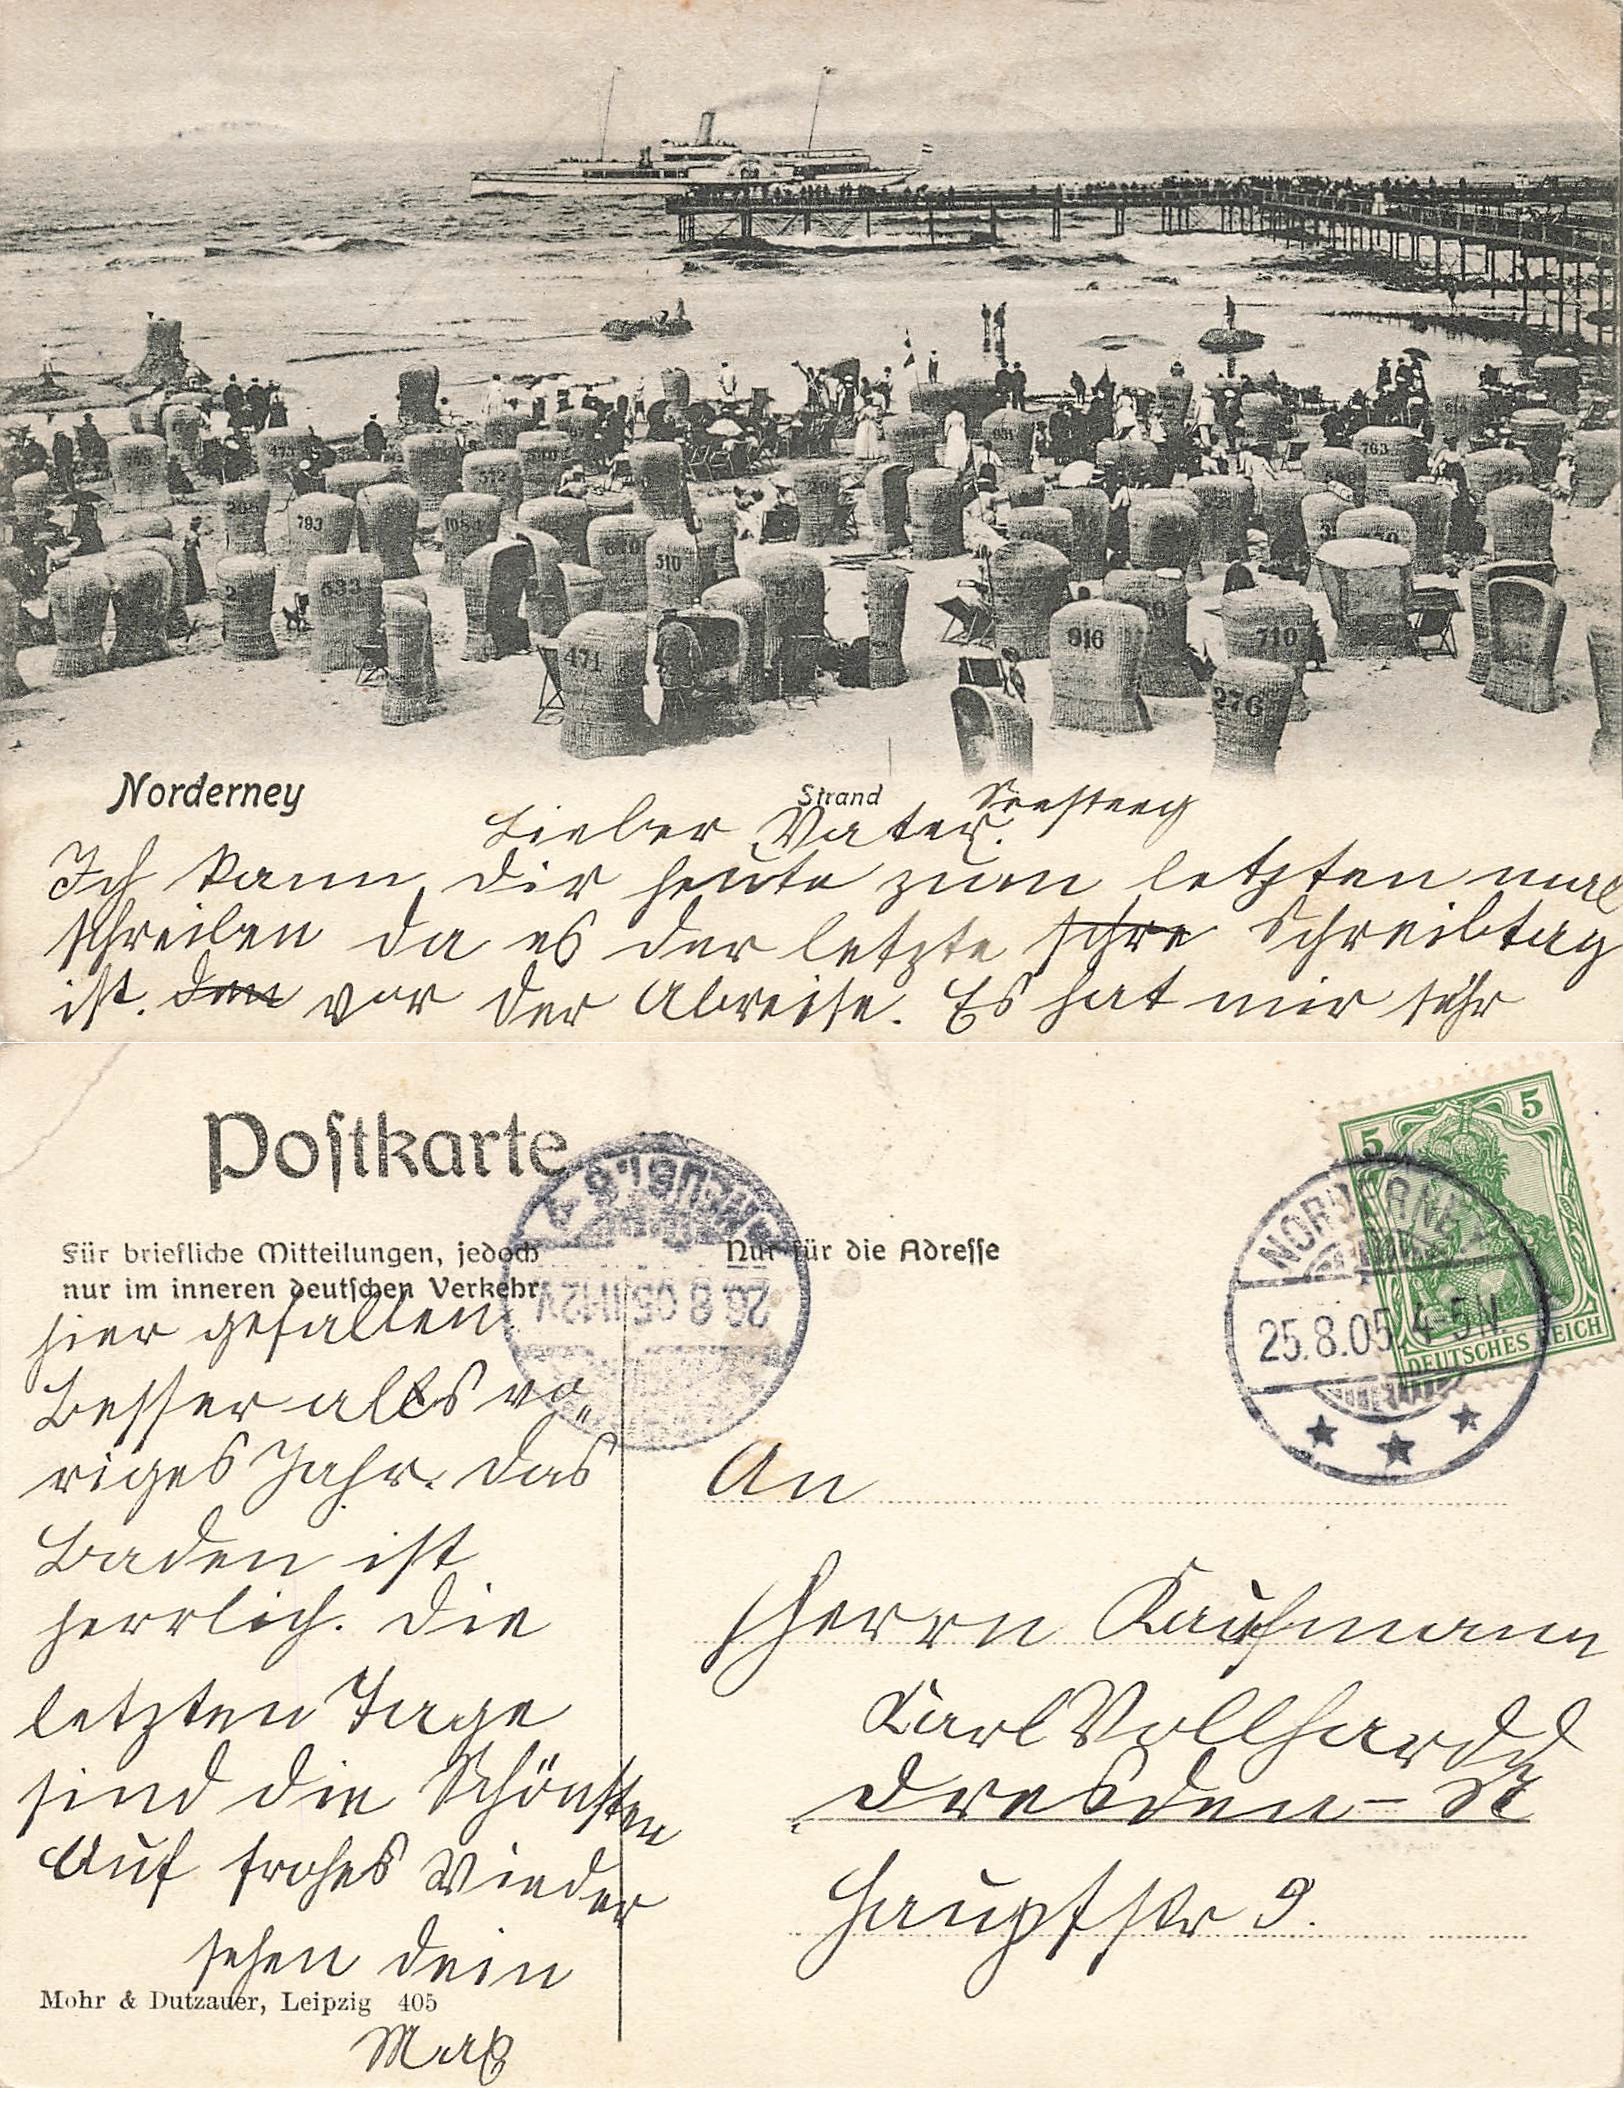 793
510
633
471
916
710
276
763
Norderney
Strand
Seesteeg
Lieber Vater.
Ich kann Dir heute zum letzten mal
schreiben da es der letzte schre Schreibtag
ist. den vor der Abreise. Es hat mir sehr
Postkarte
Für briefliche Mitteilungen, jedoch
nur im inneren deutschen Verkehr
Nur für die Adresse
hier gefallen.
Besser als vo„
riges Jahr. Das
Baden ist
herrlich. Die
letzten Tage
sind die Schönsten
Auf frohes Wieder
sehen Dein
Max
Mohr & Dutzauer, Leipzig 405
26.8.05.11-12V
5 5
DEUTSCHES REICH
NORDERNEY
25.8.05.4-5N
An
Herrn Kaufmann
Karl Vollhardd
Dresden-N
Hauptstr 9.